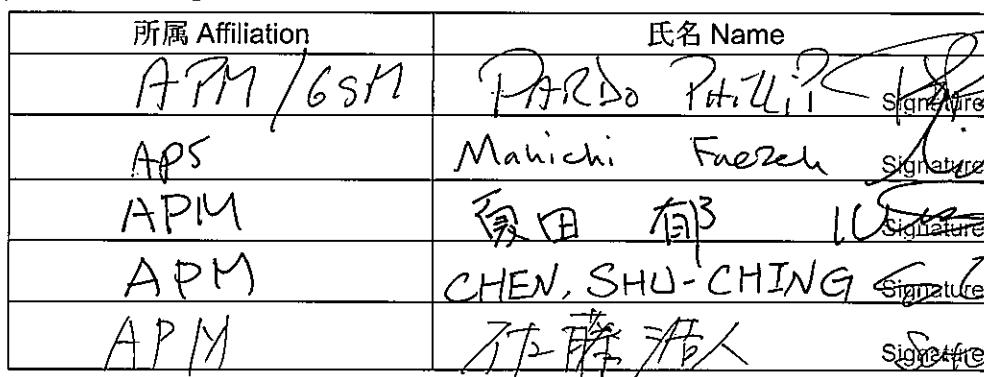 所属 Affiliation 氏名 Name
APM/GSM PARDO PHILLIP Signature
APS Manichi Faezeh Signature
APM 夏田 郁 Signature
APM CHEN, SHU-CHING Signature
APM 佐藤浩人 Signature